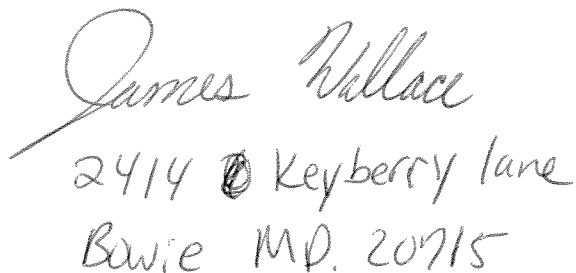 James Wallace
2414 Keyberry lane
Bowie MD. 20715